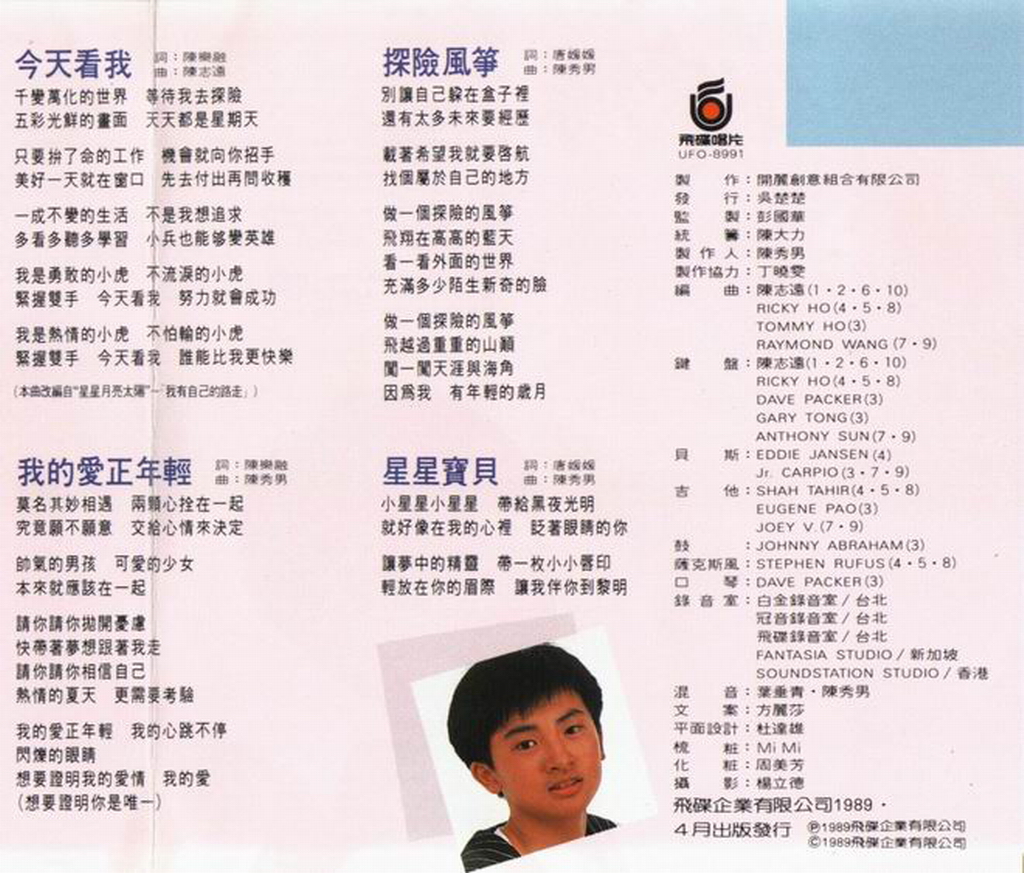 今天看我
詞：陳樂融
曲：陳志遠
千變萬化的世界　等待我去探險
五彩光鮮的畫面　天天都是星期天
只要拚了命的工作　機會就向你招手
美好一天就在窗口　先去付出再問收穫
一成不變的生活　不是我想追求
多看多聽多學習　小兵也能够變英雄
我是勇敢的小虎　不流淚的小虎
緊握雙手　今天看我　努力就會成功
我是熱情的小虎　不怕輸的小虎
緊握雙手　今天看我　誰能比我更快樂
(本曲改編自“星星月亮太陽”—「我有自己的路走」)
我的愛正年輕
詞：陳樂融
曲：陳秀男
莫名其妙相遇　兩顆心拴在一起
究竟願不願意　交給心情來決定
帥氣的男孩　可愛的少女
本來就應該在一起
請你請你拋開憂慮
快帶著夢想跟著我走
請你請你相信自己
熱情的夏天　更需要考驗
我的愛正年輕　我的心跳不停
閃爍的眼睛
想要證明我的愛情　我的愛
(想要證明你是唯一)
探險風箏
詞：唐媛媛
曲：陳秀男
別讓自己躲在盒子裡
還有太多未來要經歷
載著希望我就要啓航
找個屬於自己的地方
做一個探險的風箏
飛翔在高高的藍天
看一看外面的世界
充滿多少陌生新奇的臉
做一個探險的風箏
飛越過重重的山顛
闖一闖天涯與海角
因爲我　有年輕的歲月
星星寶貝
詞：唐媛媛
曲：陳秀男
小星星小星星　帶給黑夜光明
就好像在我的心裡　眨著眼睛的你
讓夢中的精靈　帶一枚小小唇印
輕放在你的眉際　讓我伴你到黎明
飛碟唱片
UFO-8991
製　作：開麗創意組合有限公司
發　行：吳楚楚
監　製：彭國華
統　籌：陳大力
製作人：陳秀男
製作協力：丁曉雯
編　曲：陳志遠(1・2・6・10)
RICKY HO(4・5・8)
TOMMY HO(3)
RAYMOND WANG(7・9)
鍵　盤：陳志遠(1・2・6・10)
RICKY HO(4・5・8)
DAVE PACKER(3)
GARY TONG(3)
ANTHONY SUN(7・9)
貝　斯：EDDIE JANSEN(4)
Jr. CARPIO(3・7・9)
吉　他：SHAH TAHIR(4・5・8)
EUGENE PAO(3)
JOEY V.(7・9)
鼓　　：JOHNNY ABRAHAM(3)
薩克斯風：STEPHEN RUFUS(4・5・8)
口　琴：DAVE PACKER(3)
錄音室：白金錄音室/台北
冠音錄音室/台北
飛碟錄音室/台北
FANTASIA STUDIO/新加坡
SOUNDSTATION STUDIO/香港
混　音：葉垂青・陳秀男
文　案：方麗莎
平面設計：杜達雄
梳　粧：Mi Mi
化　粧：周美芳
攝　影：楊立德
飛碟企業有限公司1989・
4月出版發行
Ⓟ1989飛碟企業有限公司
©1989飛碟企業有限公司